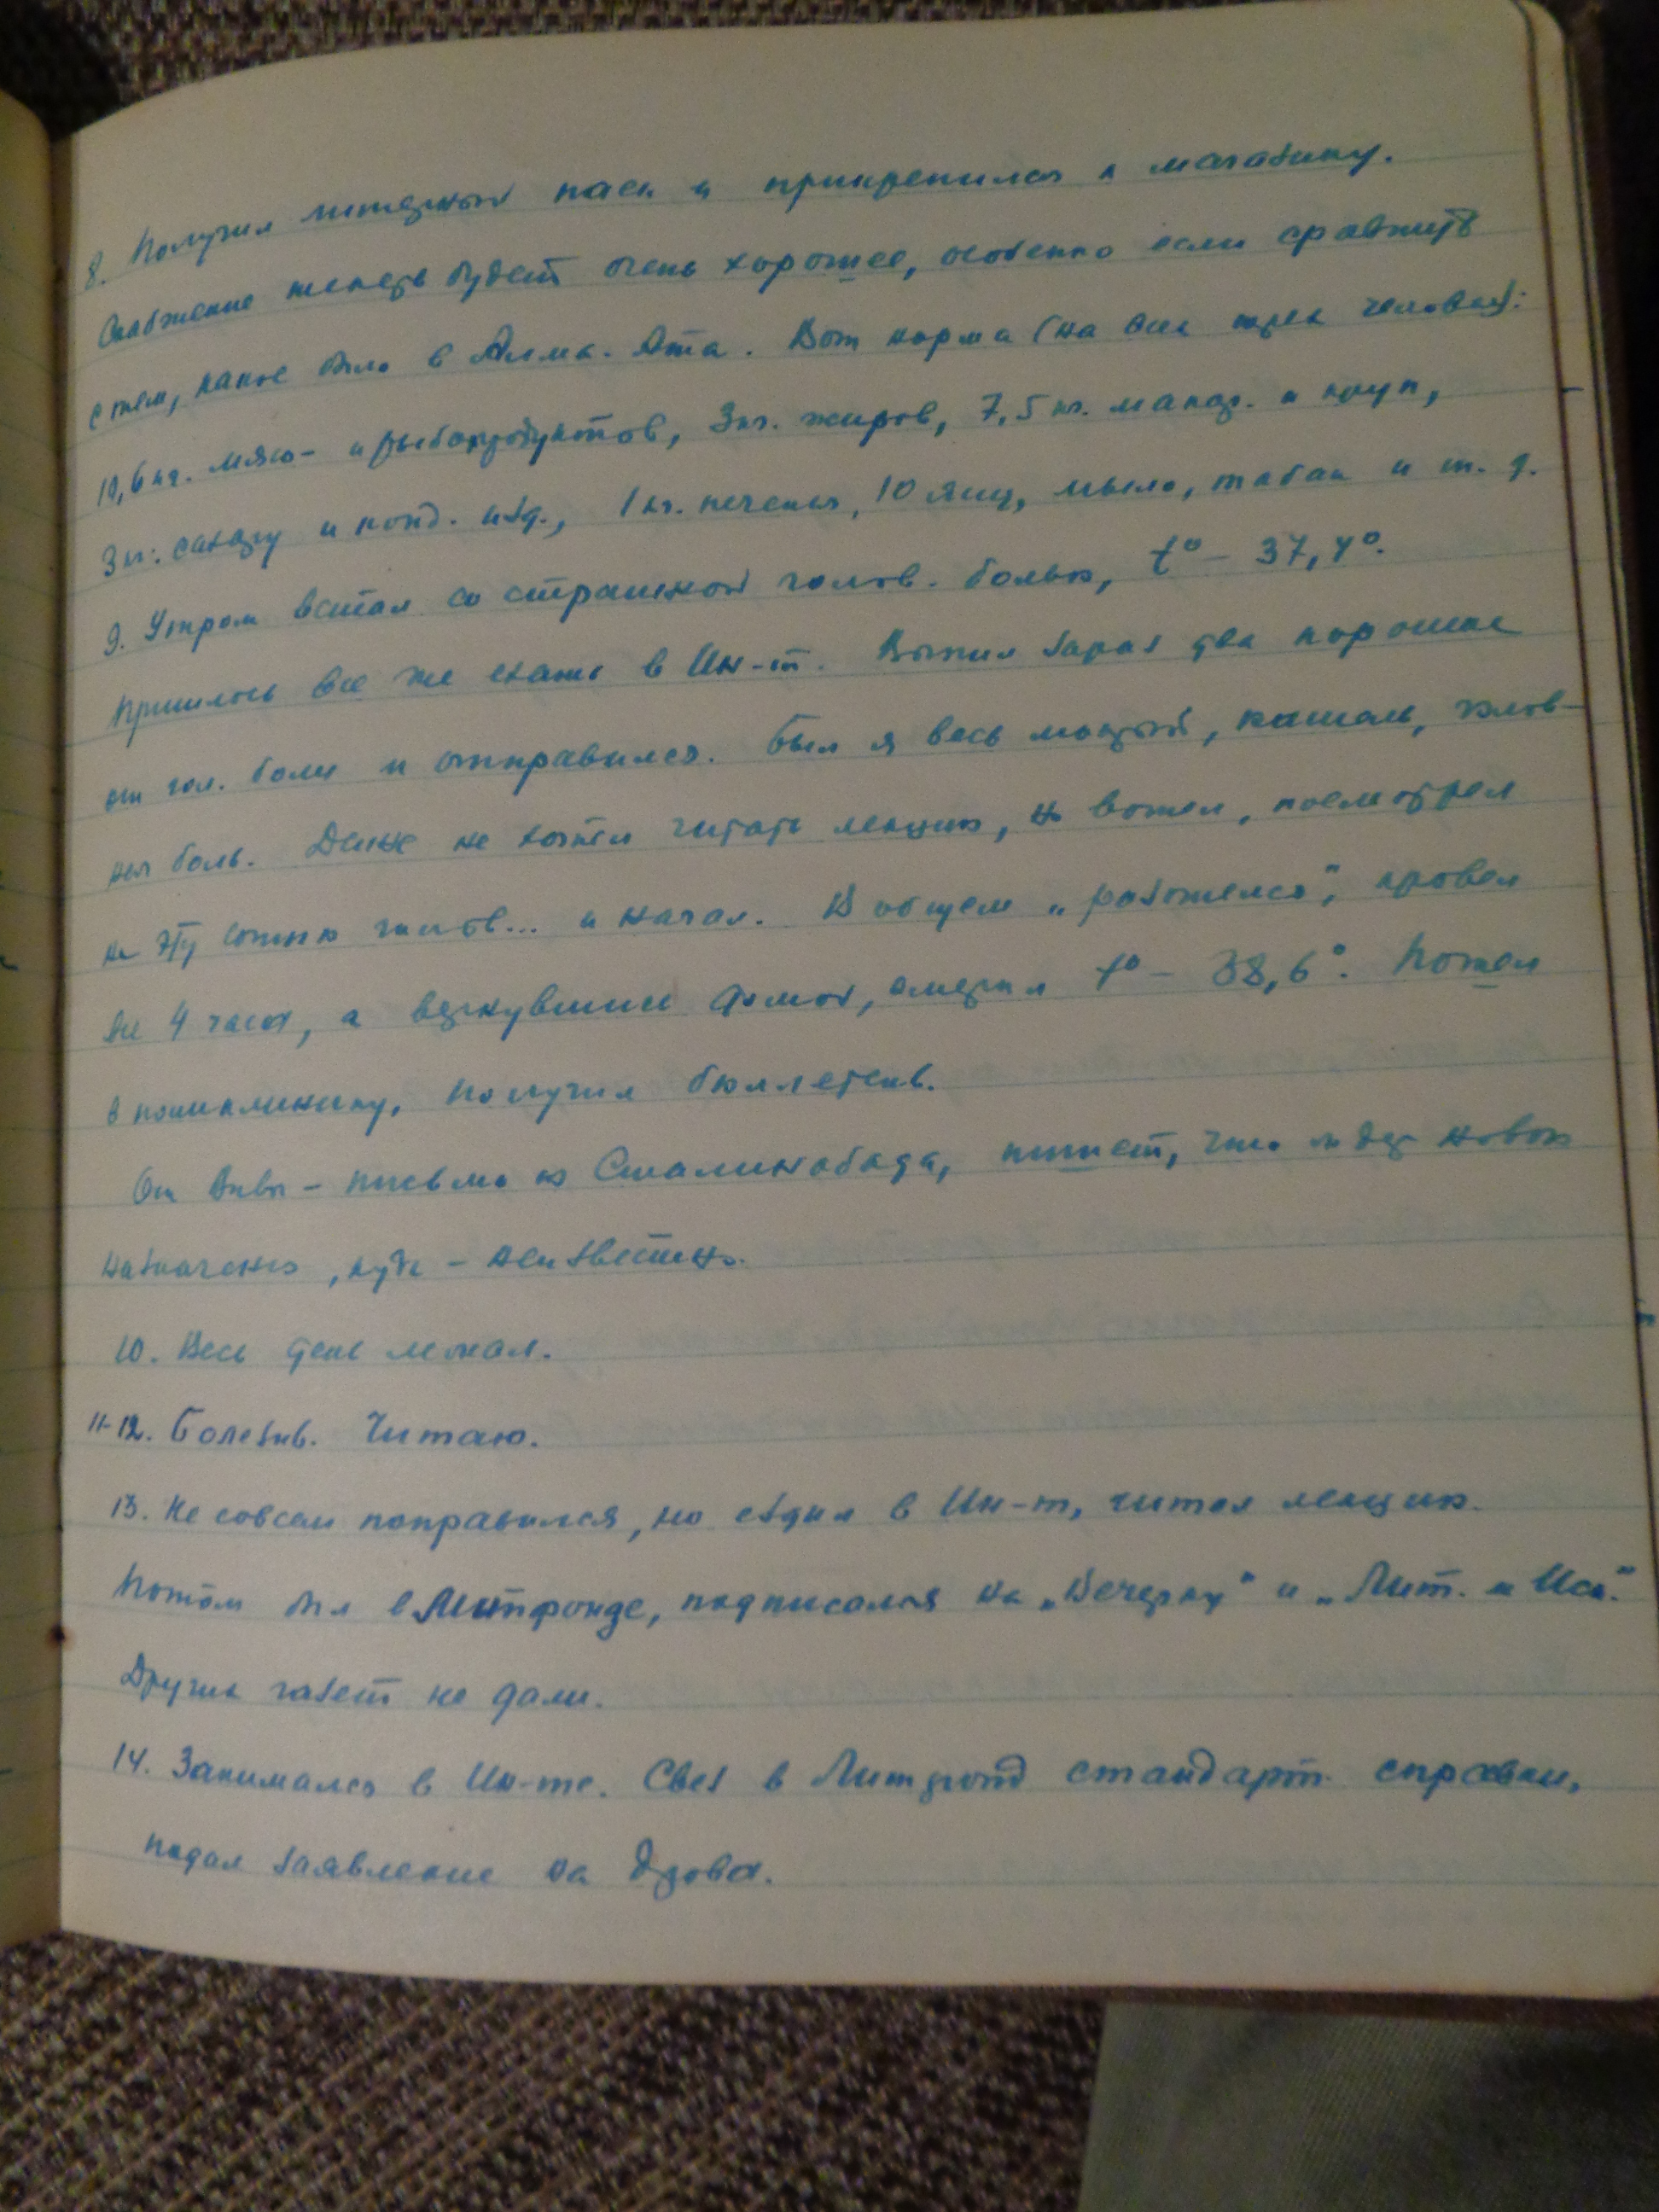 8. Получил литерный паек и прикрепился к магазину.
Снабжение теперь будет очень хорошее, особенно если сравнить
с тем, какое было в Алма-Ата. Вот норма (на всех трех человек):
10,6 кг. мясо- и рыбопродуктов, 3 кг. жиров, 7,5 кг. макар. и круп,
3 кг. сахару и конд. изд., 1 кг. печенья, 10 яиц, мыло, табак и т. д.
9. Утром встал со страшной голов. болью, t° – 37,4°.
Пришлось все же ехать в Ин-т. Выпил зараз два порошка
от гол. боли и отправился. Был я весь мокрый, кашель, голов-
ная боль. Даже не хотел читать лекцию, но вошел, посмотрел
на эту сотню голов... и начал. В общем „разошелся", провел
все 4 часа, а вернувшись домой, смерил t° – 38,6°. Пошел
в поликлинику, получил бюллетень.
От Вивы – письмо из Сталинабада, пишет, что ждет новое
назначение, куда – неизвестно.
10. Весь день лежал.
11-12. Болезнь. Читаю.
13. Не совсем поправился, но ездил в Ин-т, читал лекцию.
Потом был в Литфонде, подписался на „Вечерку" и „Лит. и Иск."
Других газет не дали.
14. Занимался в Ин-те. Свез в Литфонд стандарт. справки,
подал заявление на дрова.